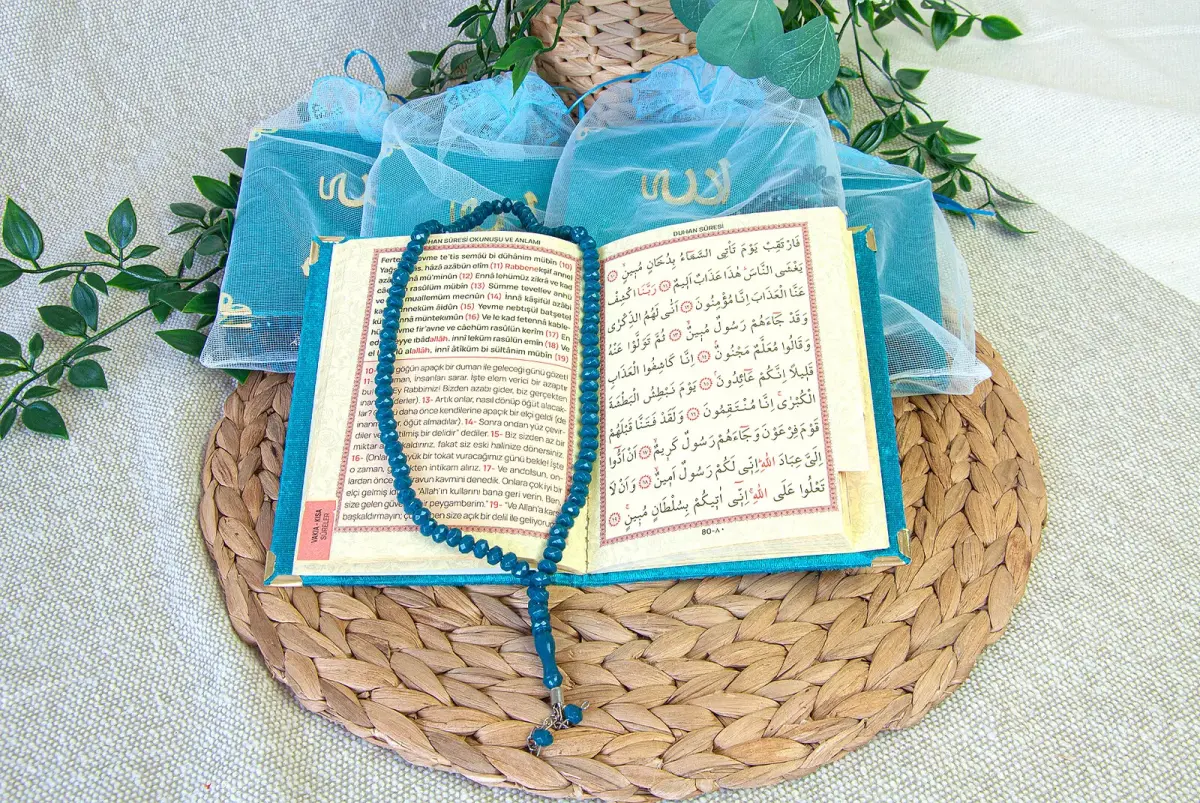 الله
DUHAN SÛRESİ OKUNUŞU VE ANLAMI
Yevme te'tis semâü bi dühânim mübîn (10)
hâzâ azâbün elîm (11) Rabbenekşif annel
mü'minûn (12) Ennâ lehümüz zikrâ ve kad
rasûlüm mübîn (13) Sümme tevellev anhü
muallemüm mecnûn (14) İnnâ kâşifül azâbi
innekküm âidûn (15) Yevme nebtışül batşetel
müntekımûn (16) Ve le kad fetennâ kable-
fir'avne ve câehüm rasûlün kerîm (17) En
ibâdallâh, innî leküm rasûlün emîn (18) Ve
alallâh, innî âtîküm bi sültânim mübîn (19)
göğün apaçık bir duman ile geleceği günü gözetl
insanları sarar. İşte elem verici bir azaptır
"Ey Rabbimiz! Bizden azabı gider, biz gerçekten
derler). 13- Artık onlar, nasıl dönüp öğüt alacak-
daha önce kendilerine apaçık bir elçi geldi (de
öğüt almadılar). 14- Sonra ondan yüz çevir-
diler ve bir delidir" dediler. 15- Biz sizden az bir
miktar fakat siz eski halinize dönersiniz.
16- (Onları) büyük bir tokat vuracağımız günü bekle! İşte
o zaman, intikam alırız. 17- Ve andolsun, on-
lardan önce kavmini denedik. Onlara çok iyi bir
elçi gelmiş "Allah'ın kullarını bana geri verin. Ben,
size gelen bir peygamberim." 19- "Ve Allah'a karşı
başkaldırmayın; size apaçık bir delil ile geliyorum
VAKIA - KISA
SÛRELER
DUHAN SÛRESİ
فَارْتَقِبْ يَوْمَ تَأْتِي السَّمَاءُ بِدُخَانٍ مُبِينٍ ﴿١٠﴾
يَغْشَى النَّاسَ هٰذَا عَذَابٌ اَلِيمٌ ﴿١١﴾ رَبَّنَا اكْشِفْ
عَنَّا الْعَذَابَ اِنَّا مُؤْمِنُونَ ﴿١٢﴾ اَنّٰى لَهُمُ الذِّكْرٰى
وَقَدْ جَاءَهُمْ رَسُولٌ مُبِينٌ ﴿١٣﴾ ثُمَّ تَوَلَّوْا عَنْهُ
وَقَالُوا مُعَلَّمٌ مَجْنُونٌ ﴿١٤﴾ اِنَّا كَاشِفُوا الْعَذَابِ
قَلِيلًا اِنَّكُمْ عَائِدُونَ ﴿١٥﴾ يَوْمَ نَبْطِشُ الْبَطْشَةَ
الْكُبْرٰى اِنَّا مُنْتَقِمُونَ ﴿١٦﴾ وَلَقَدْ فَتَنَّا قَبْلَهُمْ
قَوْمَ فِرْعَوْنَ وَجَاءَهُمْ رَسُولٌ كَرِيمٌ ﴿١٧﴾ اَنْ اَدُّوا
اِلَيَّ عِبَادَ اللّٰهِ اِنِّي لَكُمْ رَسُولٌ اَمِينٌ ﴿١٨﴾ وَاَنْ لَا
تَعْلُوا عَلَى اللّٰهِ اِنِّي اٰتِيكُمْ بِسُلْطَانٍ مُبِينٍ ﴿١٩﴾
80-٨٠